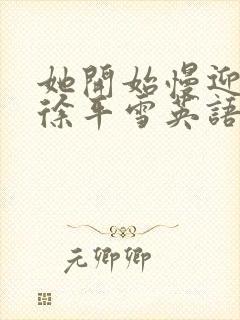 她開始慢迎
徐平雪英語
元卿卿